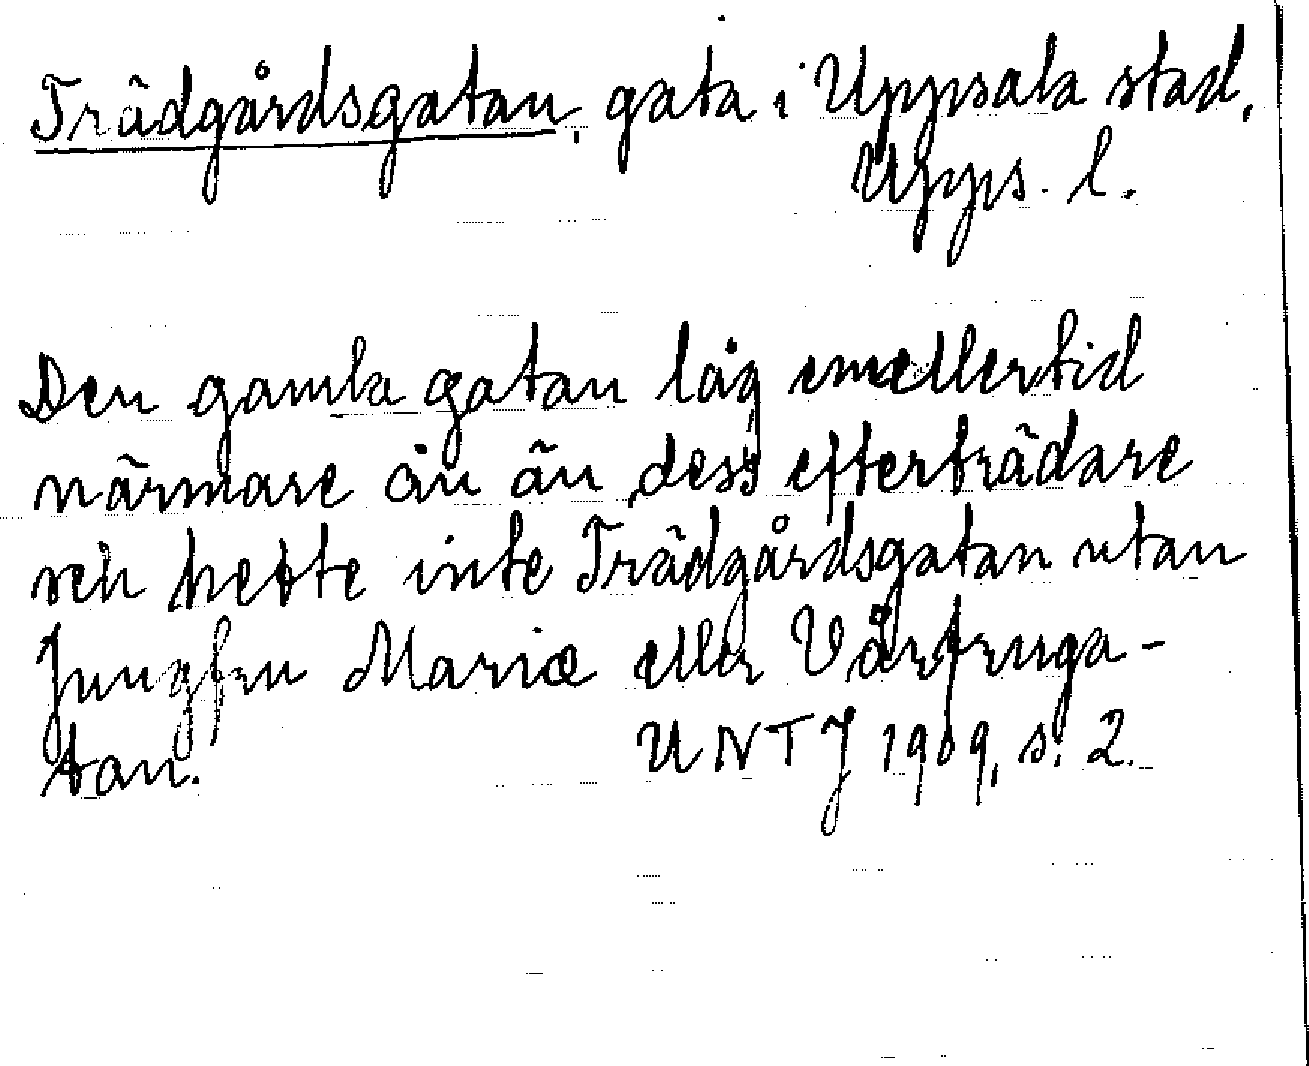 Trädgårdsgatan, gata i Uppsala stad,
Upps. l.
Den gamla gatan låg emellertid
närmare ån än dess efterträdare
och hette inte Trädgårdsgatan utan
Jungfru Mariæ eller Vårfruga-
tan. UNTJ 1909, s. 2.